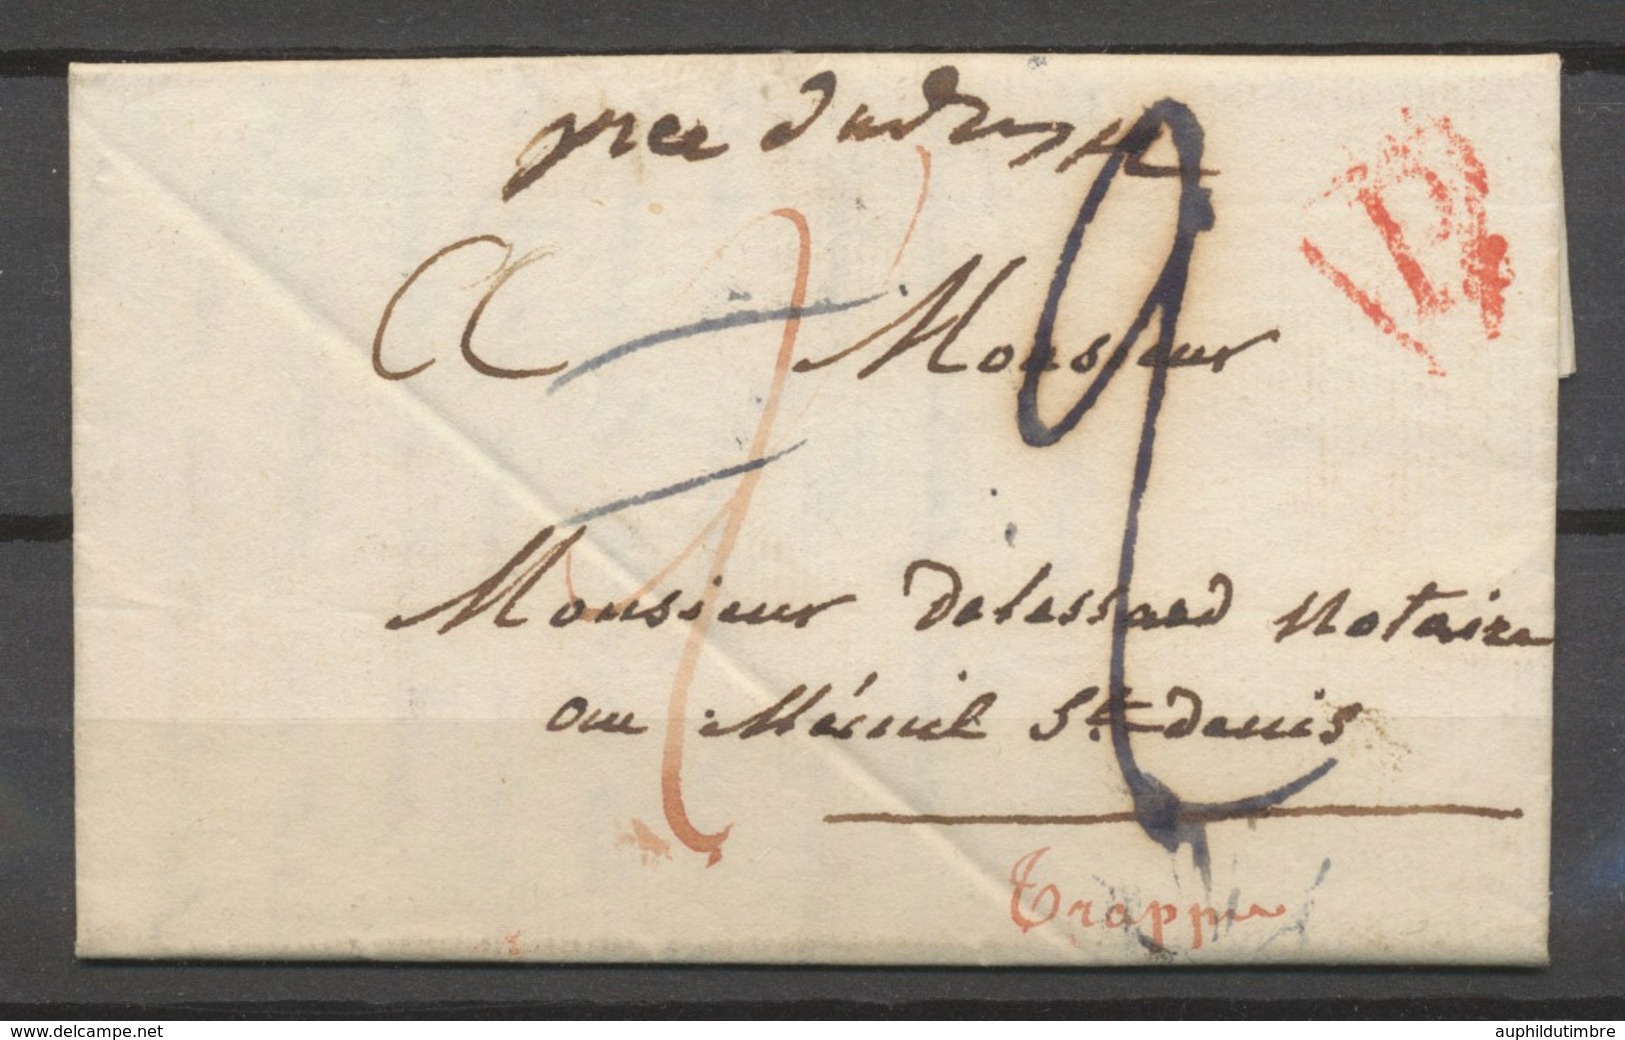 Monsieur
Monsieur delessard Notaire
au Mésnil St. denis
Trappe
P
www.delcampe.net
auphildutimbre